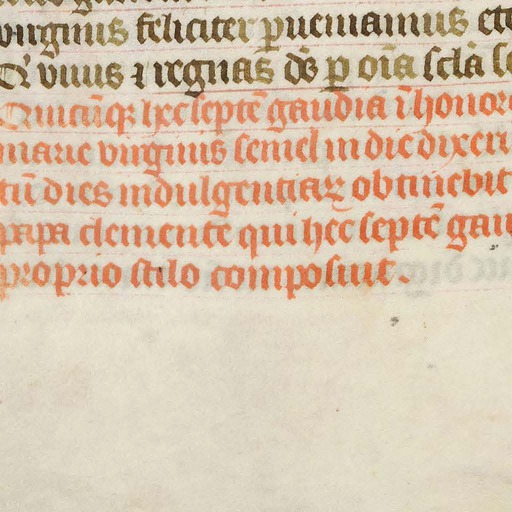 virginis feliciter perueniamus et
Qui viuis ⁊ regnas ds̄ ꝑ oīa scl̄a
Quicūqꝫ hec septē gaudia ī honore
marie virginis semel in die dixeri
tū dies indulgentiaꝝ obtinebit
papa clemente qui hec̄ septē gau
proprio stilo composuit.